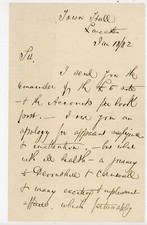 Town Hall
Leicester
Jan 18/82
Sir,
I send you the
remainder of the
& the Accounts per book
post — I owe you an
apology for apparent neglect
& inattention — but what
with ill health — a journey
to Devonshire & Cornwall
& many exciting & unpleasant
affairs, which